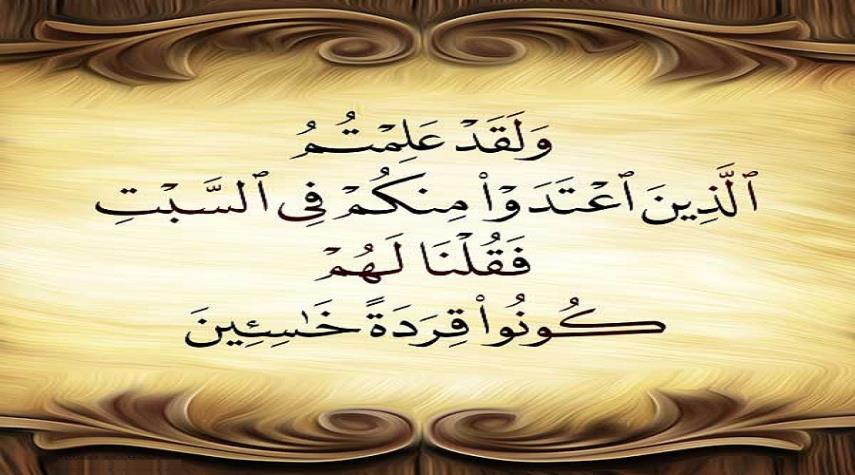 وَلَقَدْ عَلِمْتُمُ
ٱلَّذِينَ ٱعْتَدَوْا۟ مِنكُمْ فِى ٱلسَّبْتِ
فَقُلْنَا لَهُمْ
كُونُوا۟ قِرَدَةً خَـٰسِـِٔينَ